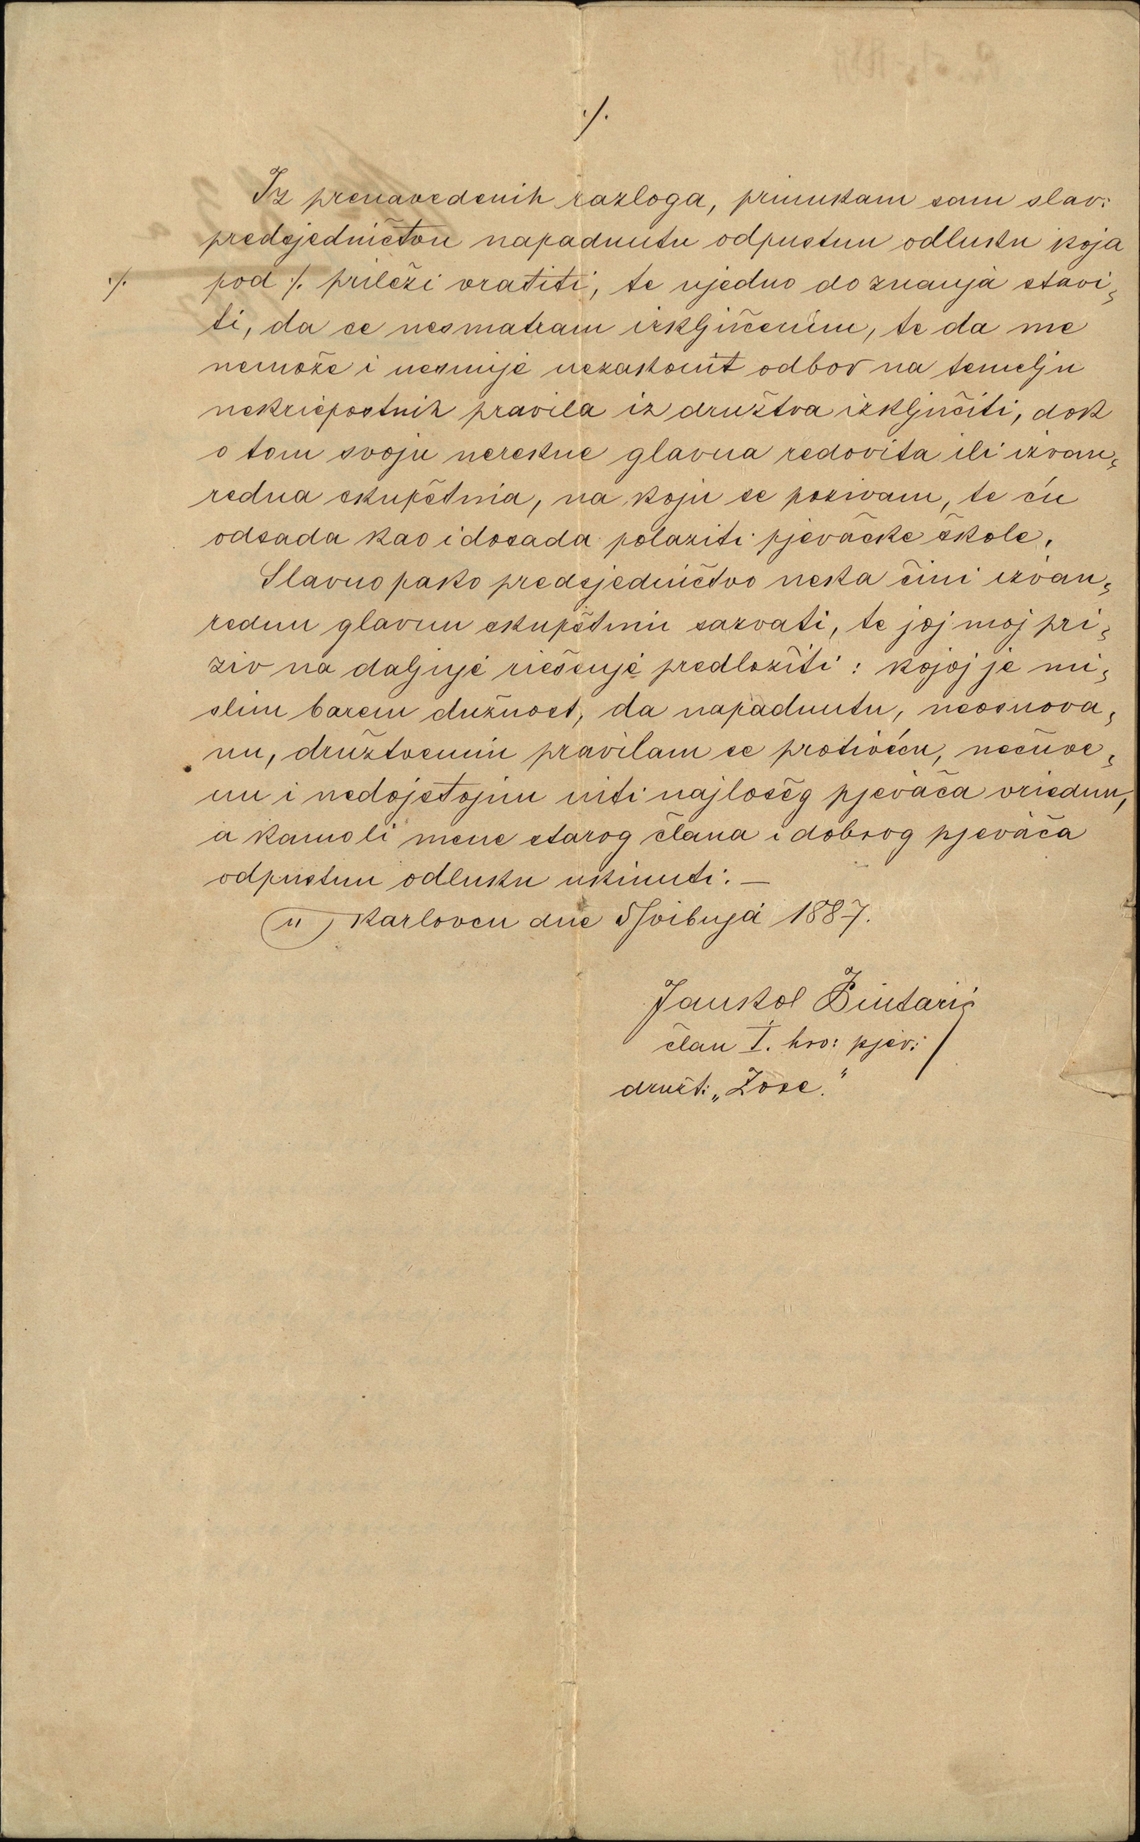 ./.
Iz prenavedenih razloga, prinukam sam slav:
predsjedničtvu napadnutu odpustnu odluku koja
./. pod ./. prileži vratiti, te ujedno do znanja stavi-
ti, da se nesmatram izključenim, te da me
nemože i nesmije nezakonit odbor na temelju
nekriepostnih pravila iz družtva izključiti, dok
o tom svoju nerekne glavna redovita ili izvan-
redna skupština, na koju se pozivam, te ću
odsada kao i dosada polaziti pjevačke škole.
Slavno pako predsjedničtvo neka čini izvan-
rednu glavnu skupštinu sazvati, te joj moj pri-
ziv na daljnje riešenje predložiti: kojoj je mi-
slim barem dužnost, da napadnutu, neosnova-
nu, družtvenim pravilam se protiveću, nečuve-
nu i nedojstojnu niti najlošeg pjevača vriednu,
a kamoli mene starog člana i dobrog pjevača
odpustnu odluku ukinuti. —
U Karlovcu dne 5 Svibnja 1887.
Jankol Žintarić
član I. hrv: pjev:
družt: „Zore."